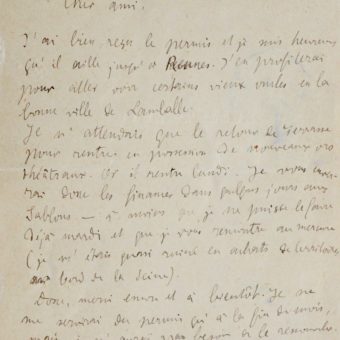 Cher ami.
J'ai bien reçu le permis et je suis heureux
qu'il aille jusqu'à Rennes. J'en profiterai
pour aller voir certains vieux oncles en la
bonne ville de Lamballe.
Je n'attendais que le retour de
pour rentrer en possession de nouveaux ors
théâtraux. Or il rentre lundi. Je vous
donc les finances dans quelques jours aux
Sablons — à moins que je ne puisse le faire
déjà mardi et que je vous rencontre au mercure
(je m'étais quasi ruiné en achats de territoires
au bord de la Seine).
Donc, merci encore et à bientôt. Je ne
me servirai du permis qu'à la fin du mois,